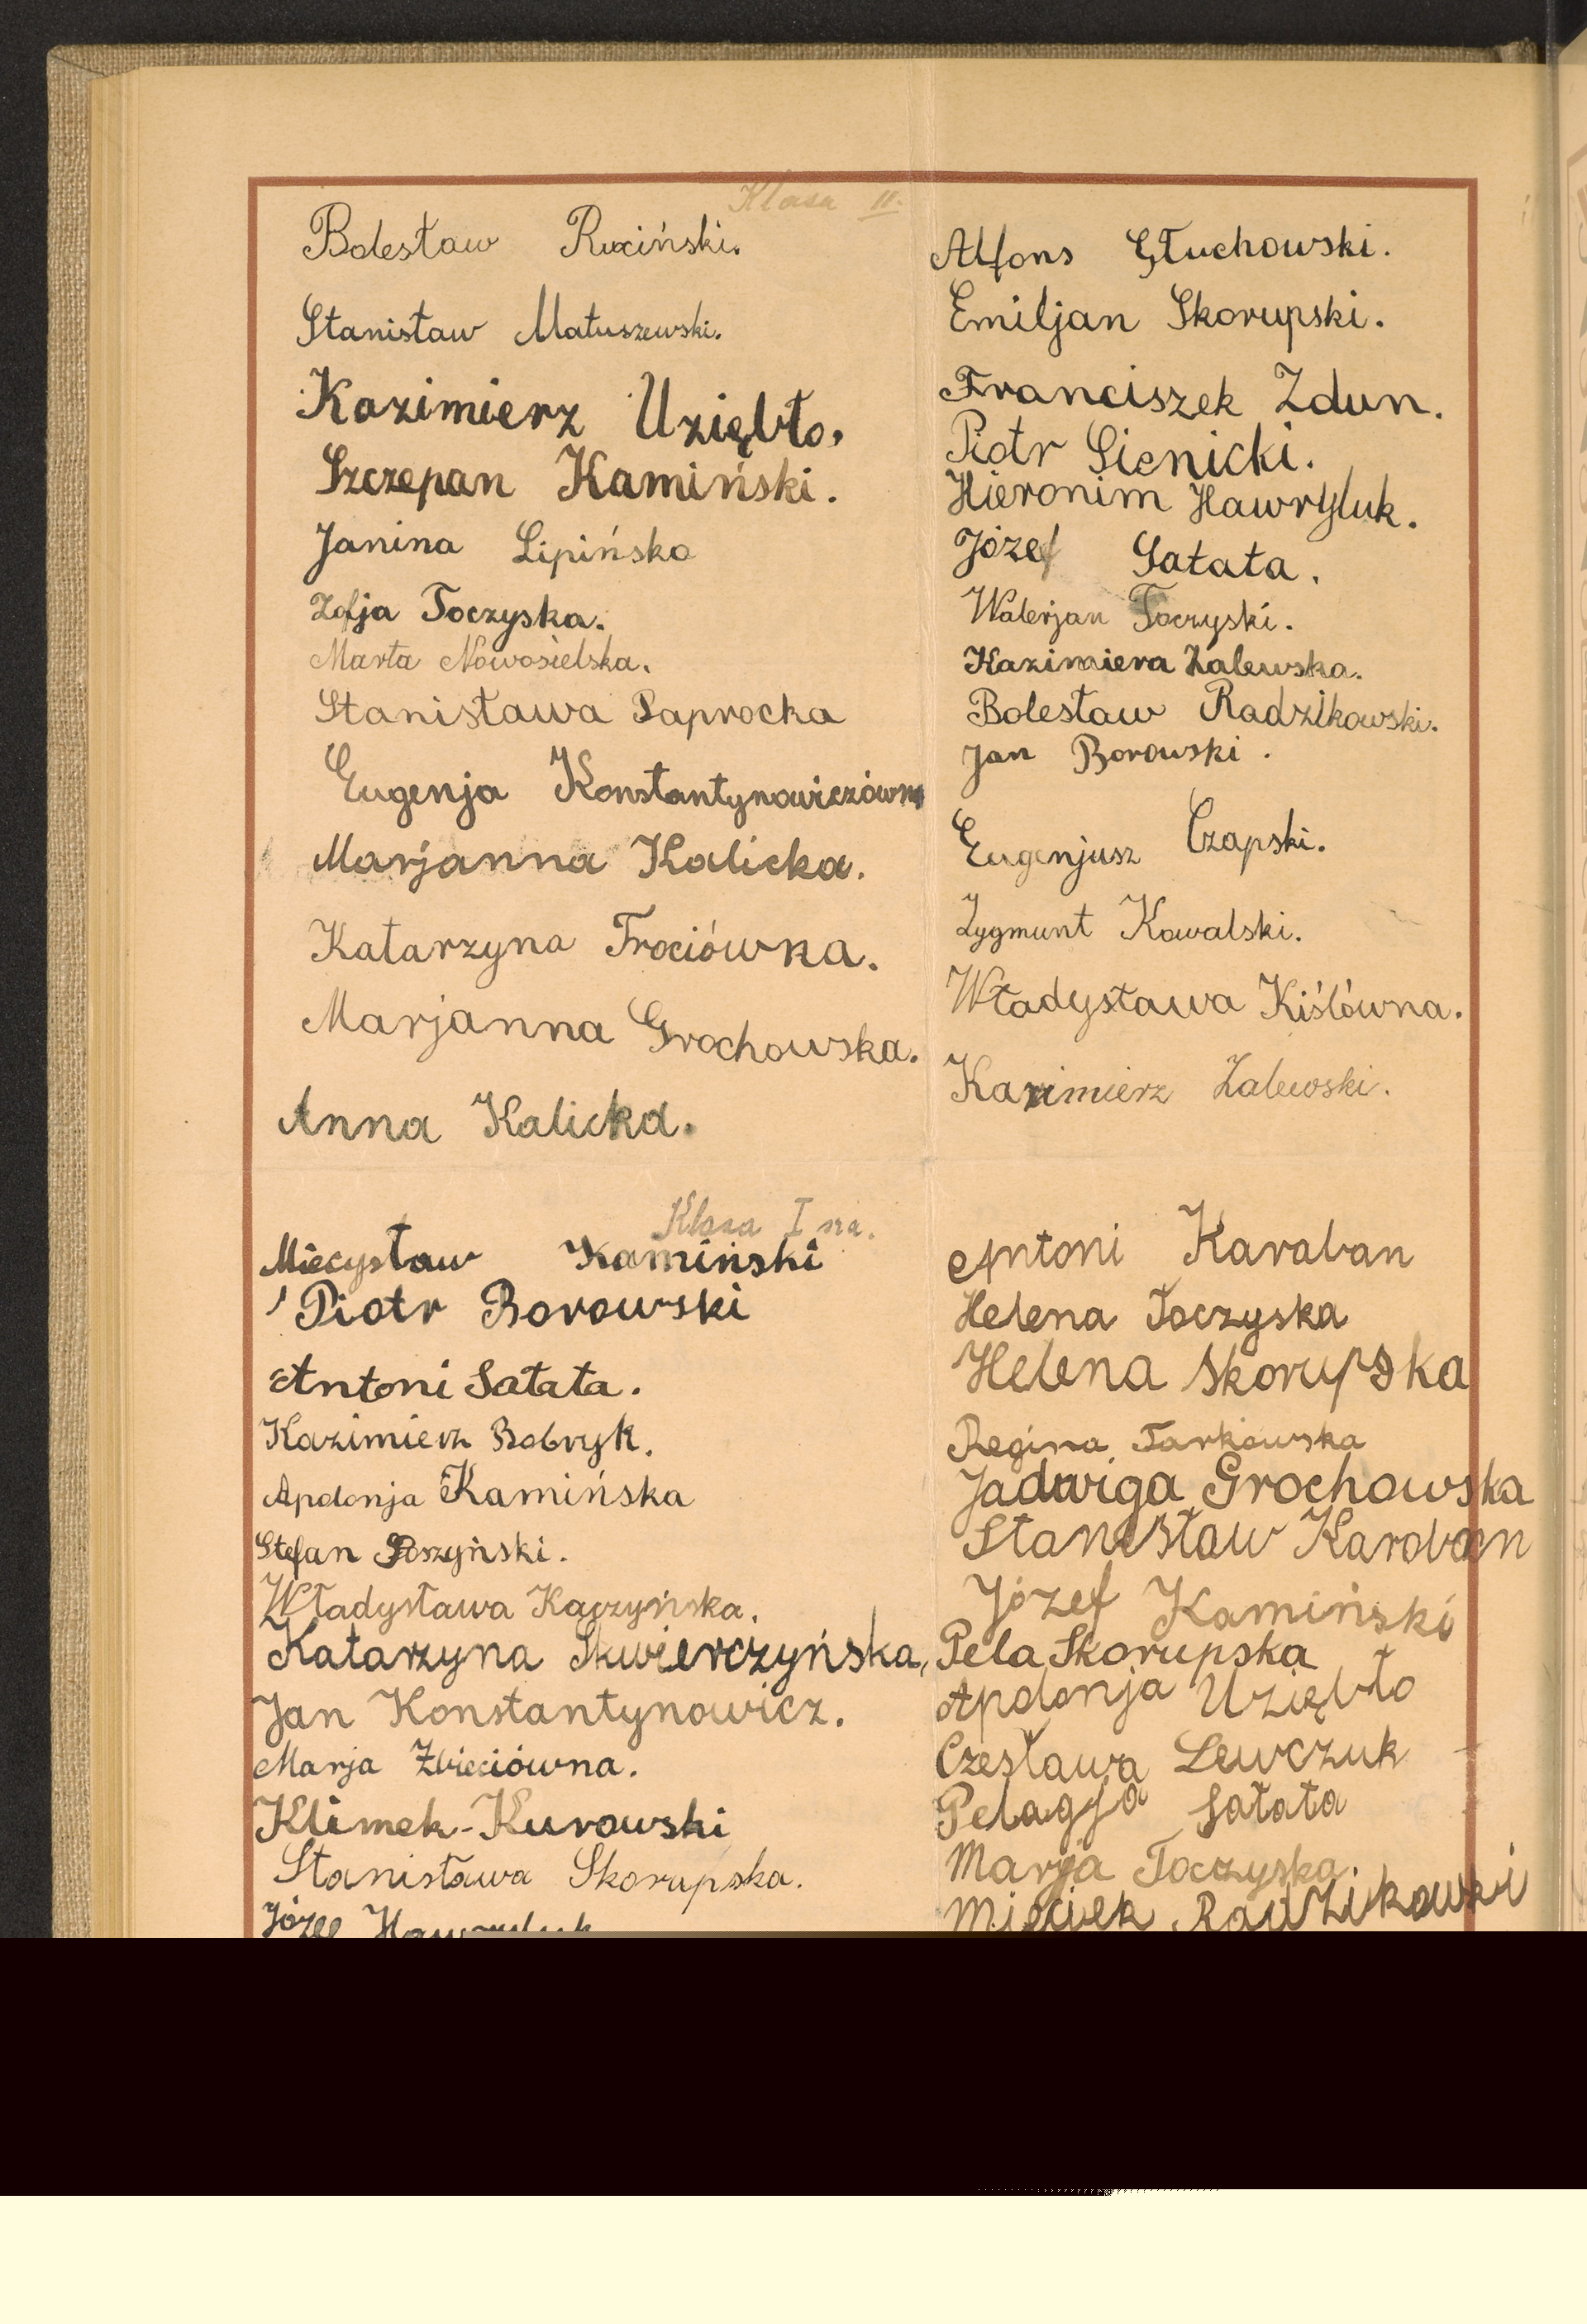 Klasa II.
Bolesław Ruciński.
Stanisław Matuszewski.
Kazimierz Uziębło.
Szczepan Kamiński.
Janina Lipińska
Zofja Toczyska.
Marta Nowosielska.
Stanisława Paprocka
Eugenja Konstantynowiczówna
Marjanna Kalicka.
Katarzyna Trociówna.
Marjanna Grochowska.
Anna Kalicka.
Alfons Głuchowski.
Emiljan Skorupski.
Franciszek Zdun.
Piotr Sienicki.
Hieronim Hawryluk.
Józef Sałata.
Walerjan Toczyski.
Kazimiera Zalewska.
Bolesław Radzikowski.
Jan Borowski.
Eugenjusz Czapski.
Zygmunt Kowalski.
Władysława Kiślówna.
Kazimierz Zalewski.
Klasa I sza.
Miecysław Kamiński
Piotr Borowski
Antoni Sałata.
Kazimierz Bobryk.
Apolonja Kamińska
Stefan
Władysława Kaczyńska.
Katarzyna Skwierczyńska,
Jan Konstantynowicz.
Marja Zbieciówna.
Klimek-Kurowski
Stanisława Skorupska.
Józef Hawryluk
Antoni Karaban
Helena Toczyska
Helena Skorupska
Regina Tarkowska
Jadwiga Grochowska
Stanisław Karaban
Józef Kamiński
Pela Skorupska
Apolonja Uziębło
Czesława Lewczuk
Pelagja Sałata
Marja Toczyska.
Mieciek Radzikowski